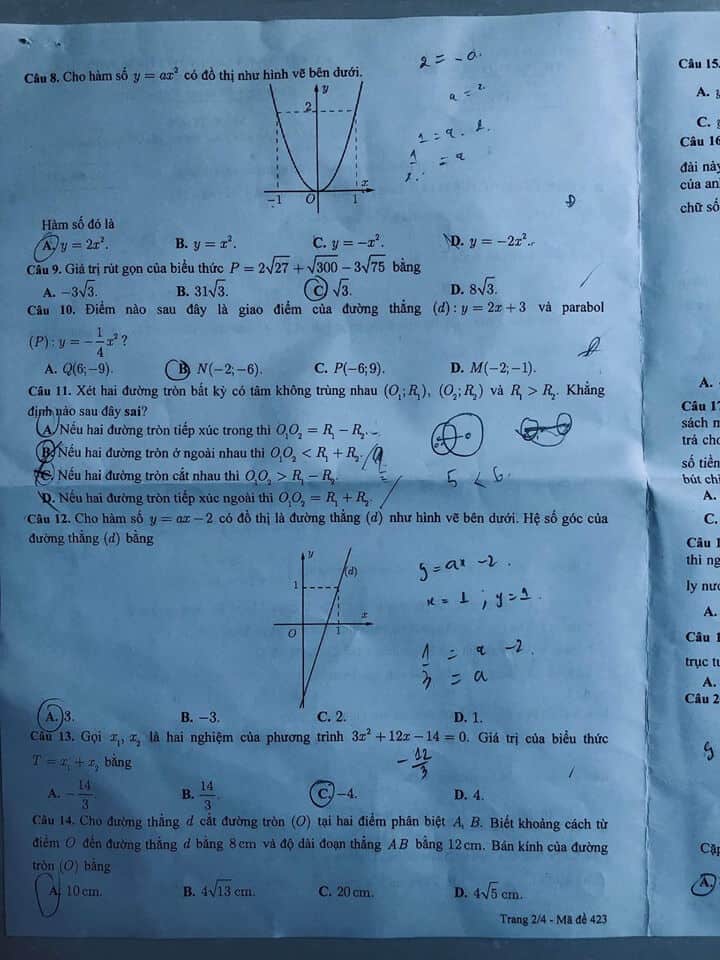 Câu 8. Cho hàm số y = ax² có đồ thị như hình vẽ bên dưới.
y
2
-1 O 1 x
2 = -a.
a = 2
1 = a.
1 = a
Hàm số đó là
A. y = 2x². B. y = x². C. y = -x². D. y = -2x².
Câu 9. Giá trị rút gọn của biểu thức P = 2√27 + √300 - 3√75 bằng
A. -3√3. B. 31√3. C. √3. D. 8√3.
Câu 10. Điểm nào sau đây là giao điểm của đường thẳng (d): y = 2x + 3 và parabol
(P): y = -1/4 x² ?
A. Q(6;-9). B. N(-2;-6). C. P(-6;9). D. M(-2;-1).
Câu 11. Xét hai đường tròn bất kỳ có tâm không trùng nhau (O₁;R₁), (O₂;R₂) và R₁ > R₂. Khẳng
định nào sau đây sai?
A. Nếu hai đường tròn tiếp xúc trong thì O₁O₂ = R₁ - R₂.
B. Nếu hai đường tròn ở ngoài nhau thì O₁O₂ < R₁ + R₂.
C. Nếu hai đường tròn cắt nhau thì O₁O₂ > R₁ - R₂.
5 < 6.
D. Nếu hai đường tròn tiếp xúc ngoài thì O₁O₂ = R₁ + R₂.
Câu 12. Cho hàm số y = ax - 2 có đồ thị là đường thẳng (d) như hình vẽ bên dưới. Hệ số góc của
đường thẳng (d) bằng
y
(d)
1
O 1 x
y = ax - 2.
x = 1 ; y = 1.
1 = a - 2.
3 = a
A. 3. B. -3. C. 2. D. 1.
Câu 13. Gọi x₁, x₂ là hai nghiệm của phương trình 3x² + 12x - 14 = 0. Giá trị của biểu thức
T = x₁ + x₂ bằng
-12/3
A. -14/3. B. 14/3. C. -4. D. 4.
Câu 14. Cho đường thẳng d cắt đường tròn (O) tại hai điểm phân biệt A, B. Biết khoảng cách từ
điểm O đến đường thẳng d bằng 8 cm và độ dài đoạn thẳng AB bằng 12 cm. Bán kính của đường
tròn (O) bằng
A. 10 cm. B. 4√13 cm. C. 20 cm. D. 4√5 cm.
Trang 2/4 - Mã đề 423
Câu 15.
A.
C.
Câu 16
đài này
của an
chữ số
A.
Câu 17
sách m
trả cho
số tiền
bút chì
A.
C.
Câu 1
thì ng
ly nướ
A.
Câu 1
trục tu
A.
Câu 2
y
Cặp
A.